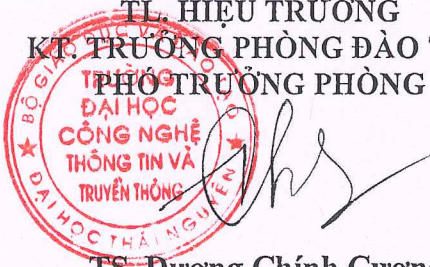 TL. HIỆU TRƯỞNG
KT. TRƯỞNG PHÒNG ĐÀO
PHÓ TRƯỞNG PHÒNG
BỘ GIÁO DỤC VÀ ĐÀO TẠO
TRƯỜNG
ĐẠI HỌC
CÔNG NGHỆ
THÔNG TIN VÀ
TRUYỀN THÔNG
ĐẠI HỌC THÁI NGUYÊN
TS. Dương Chính Cương